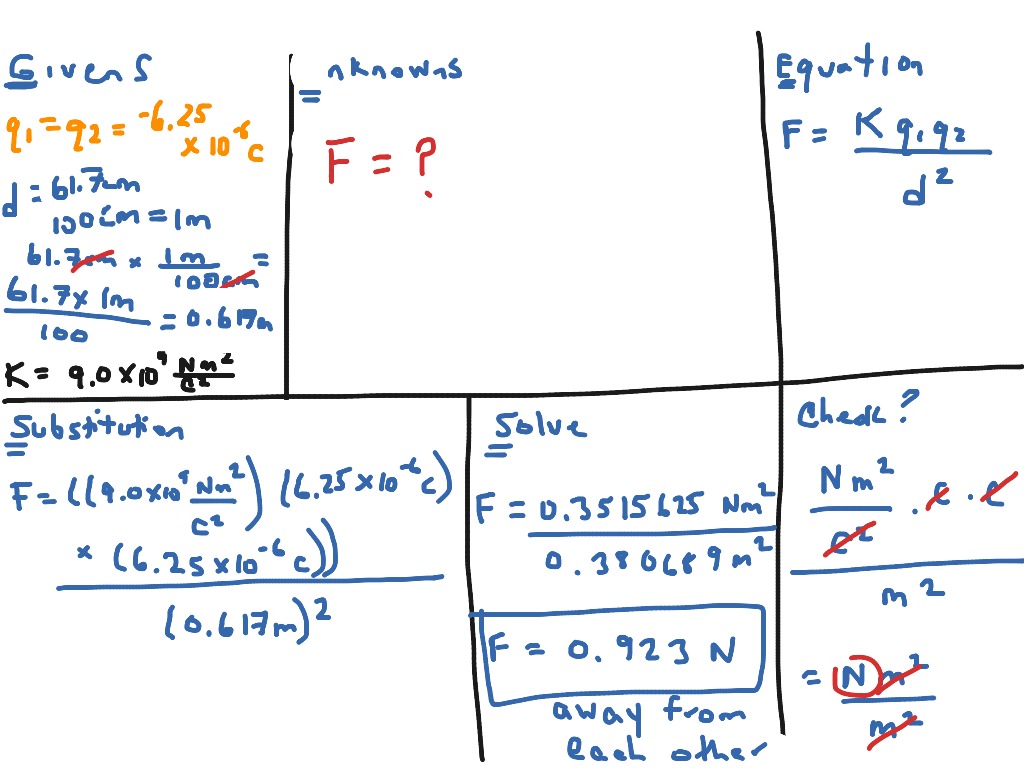 Givens
q₁ = q₂ = -6.25
x 10⁻⁶ c
d = 61.7cm
100cm = 1m
61.7cm x 1m/100cm =
61.7 x 1m/100 = 0.617m
K = 9.0 x 10⁹ Nm²/C²
nknowns
F = ?
Equation
F = K q₁q₂/d²
Substitution
F = ((9.0x10⁹ Nm²/c²) (6.25 x 10⁻⁶ c)
x (6.25 x 10⁻⁶ c))
(0.617m)²
Solve
F = 0.3515625 Nm²
0.380689m²
F = 0.923 N
away from
each other
Check?
Nm²/c² . c . c
m²
= Nm²
m²